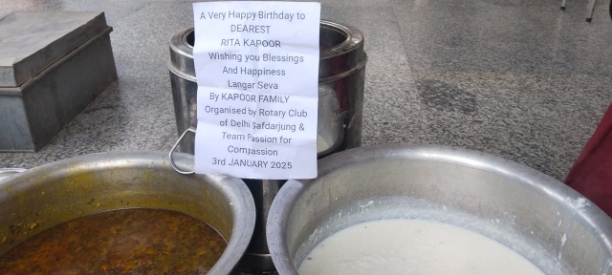 A Very Happy Birthday to
DEAREST
RITA KAPOOR
Wishing you Blessings
And Happiness
Langar Seva
By KAPOOR FAMILY
Organised by Rotary Club
of Delhi Safdarjung &
Team Passion for
Compassion
3rd JANUARY 2025